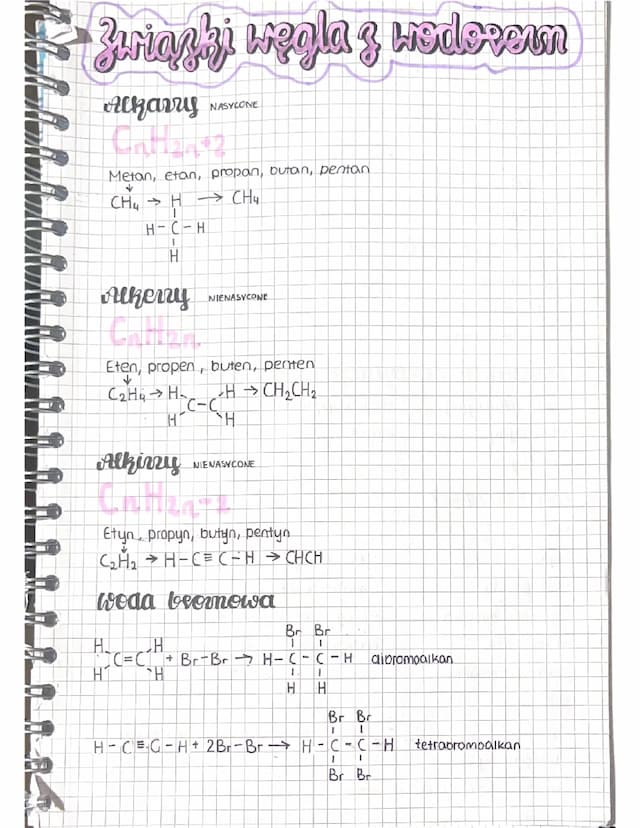 Związki węgla z wodorem
Alkany NASYCONE
CnH2n+2
Metan, etan, propan, butan, pentan
↓
CH4 → H → CH4
H-C-H
H
Alkeny NIENASYCONE
CnH2n
Eten, propen, buten, penten
↓
C2H4 → H H → CH2CH2
C-C
H H
Alkiny NIENASYCONE
CnH2n-2
Etyn, propyn, butyn, pentyn
↓
C2H2 → H-C≡C-H → CHCH
Woda bromowa
Br Br
H H
C=C + Br-Br → H-C-C-H dibromoalkan
H H
H H
Br Br
H-C≡C-H + 2Br-Br → H-C-C-H tetrabromoalkan
Br Br